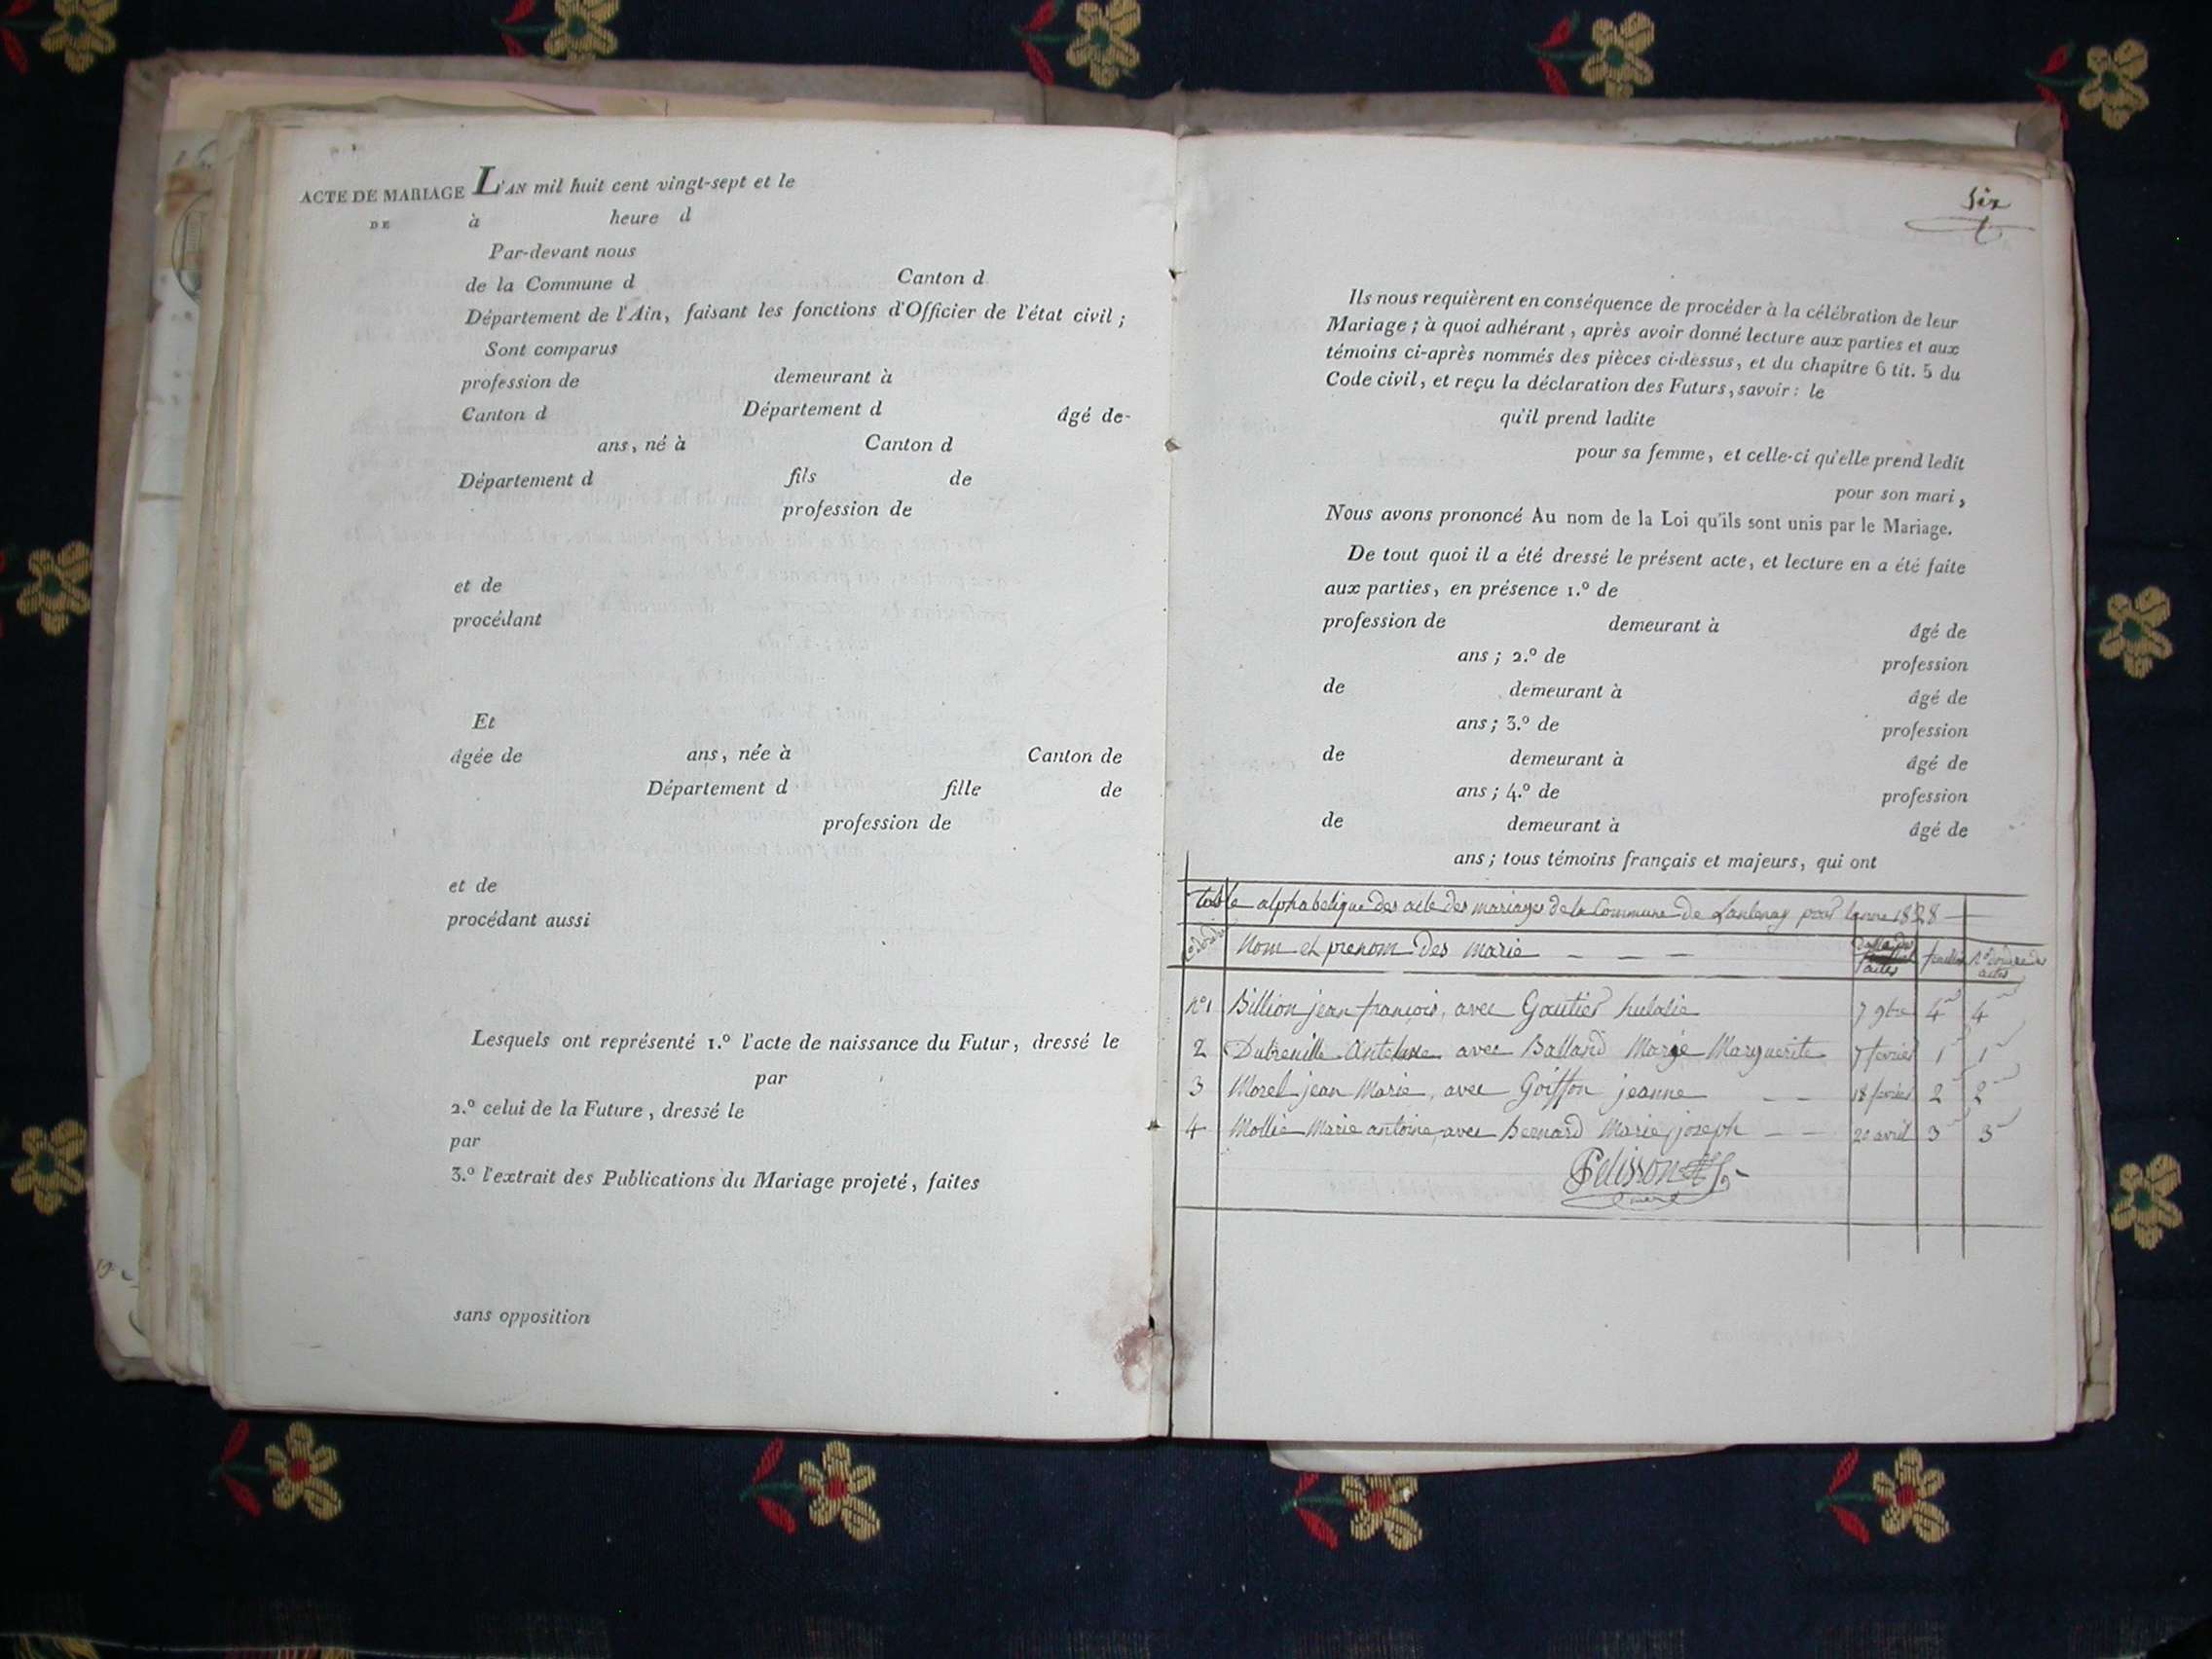 ACTE DE MARIAGE L'AN mil huit cent vingt-sept et le
DE à heure d
Par-devant nous
de la Commune d Canton d
Département de l'Ain, faisant les fonctions d'Officier de l'état civil ;
Sont comparus
profession de demeurant à
Canton d Département d âgé de
ans, né à Canton d
Département d fils de
profession de
et de
procédant
Et
âgée de ans, née à Canton de
Département d fille de
profession de
et de
procédant aussi
Lesquels ont représenté 1.º l'acte de naissance du Futur, dressé le
par
2.º celui de la Future, dressé le
par
3.º l'extrait des Publications du Mariage projeté, faites
sans opposition
Six
Ils nous requièrent en conséquence de procéder à la célébration de leur
Mariage ; à quoi adhérant, après avoir donné lecture aux parties et aux
témoins ci-après nommés des pièces ci-dessus, et du chapitre 6 tit. 5 du
Code civil, et reçu la déclaration des Futurs, savoir : le
qu'il prend ladite
pour sa femme, et celle-ci qu'elle prend ledit
pour son mari,
Nous avons prononcé Au nom de la Loi qu'ils sont unis par le Mariage.
De tout quoi il a été dressé le présent acte, et lecture en a été faite
aux parties, en présence 1.º de
profession de demeurant à âgé de
ans ; 2.º de profession
de demeurant à âgé de
ans ; 3.º de profession
de demeurant à âgé de
ans ; 4.º de profession
de demeurant à âgé de
ans ; tous témoins français et majeurs, qui ont
table alphabetique des acte des mariages de la Commune de Lantenay pour lanne 1828
Nom et prenom des marie
actes
nº1 Billion jean francois, avec Gautier hulalie 7 9bre 4 4
2 Dubreuille Antelme avec Balland Marie Marguerite 7 fevrier 1 1
3 Morel jean Marie, avec Goiffon jeanne 18 fevrier 2 2
4 Mollie Marie antoine, avec Bernard Marie joseph 20 avril 3 3
Pelisson